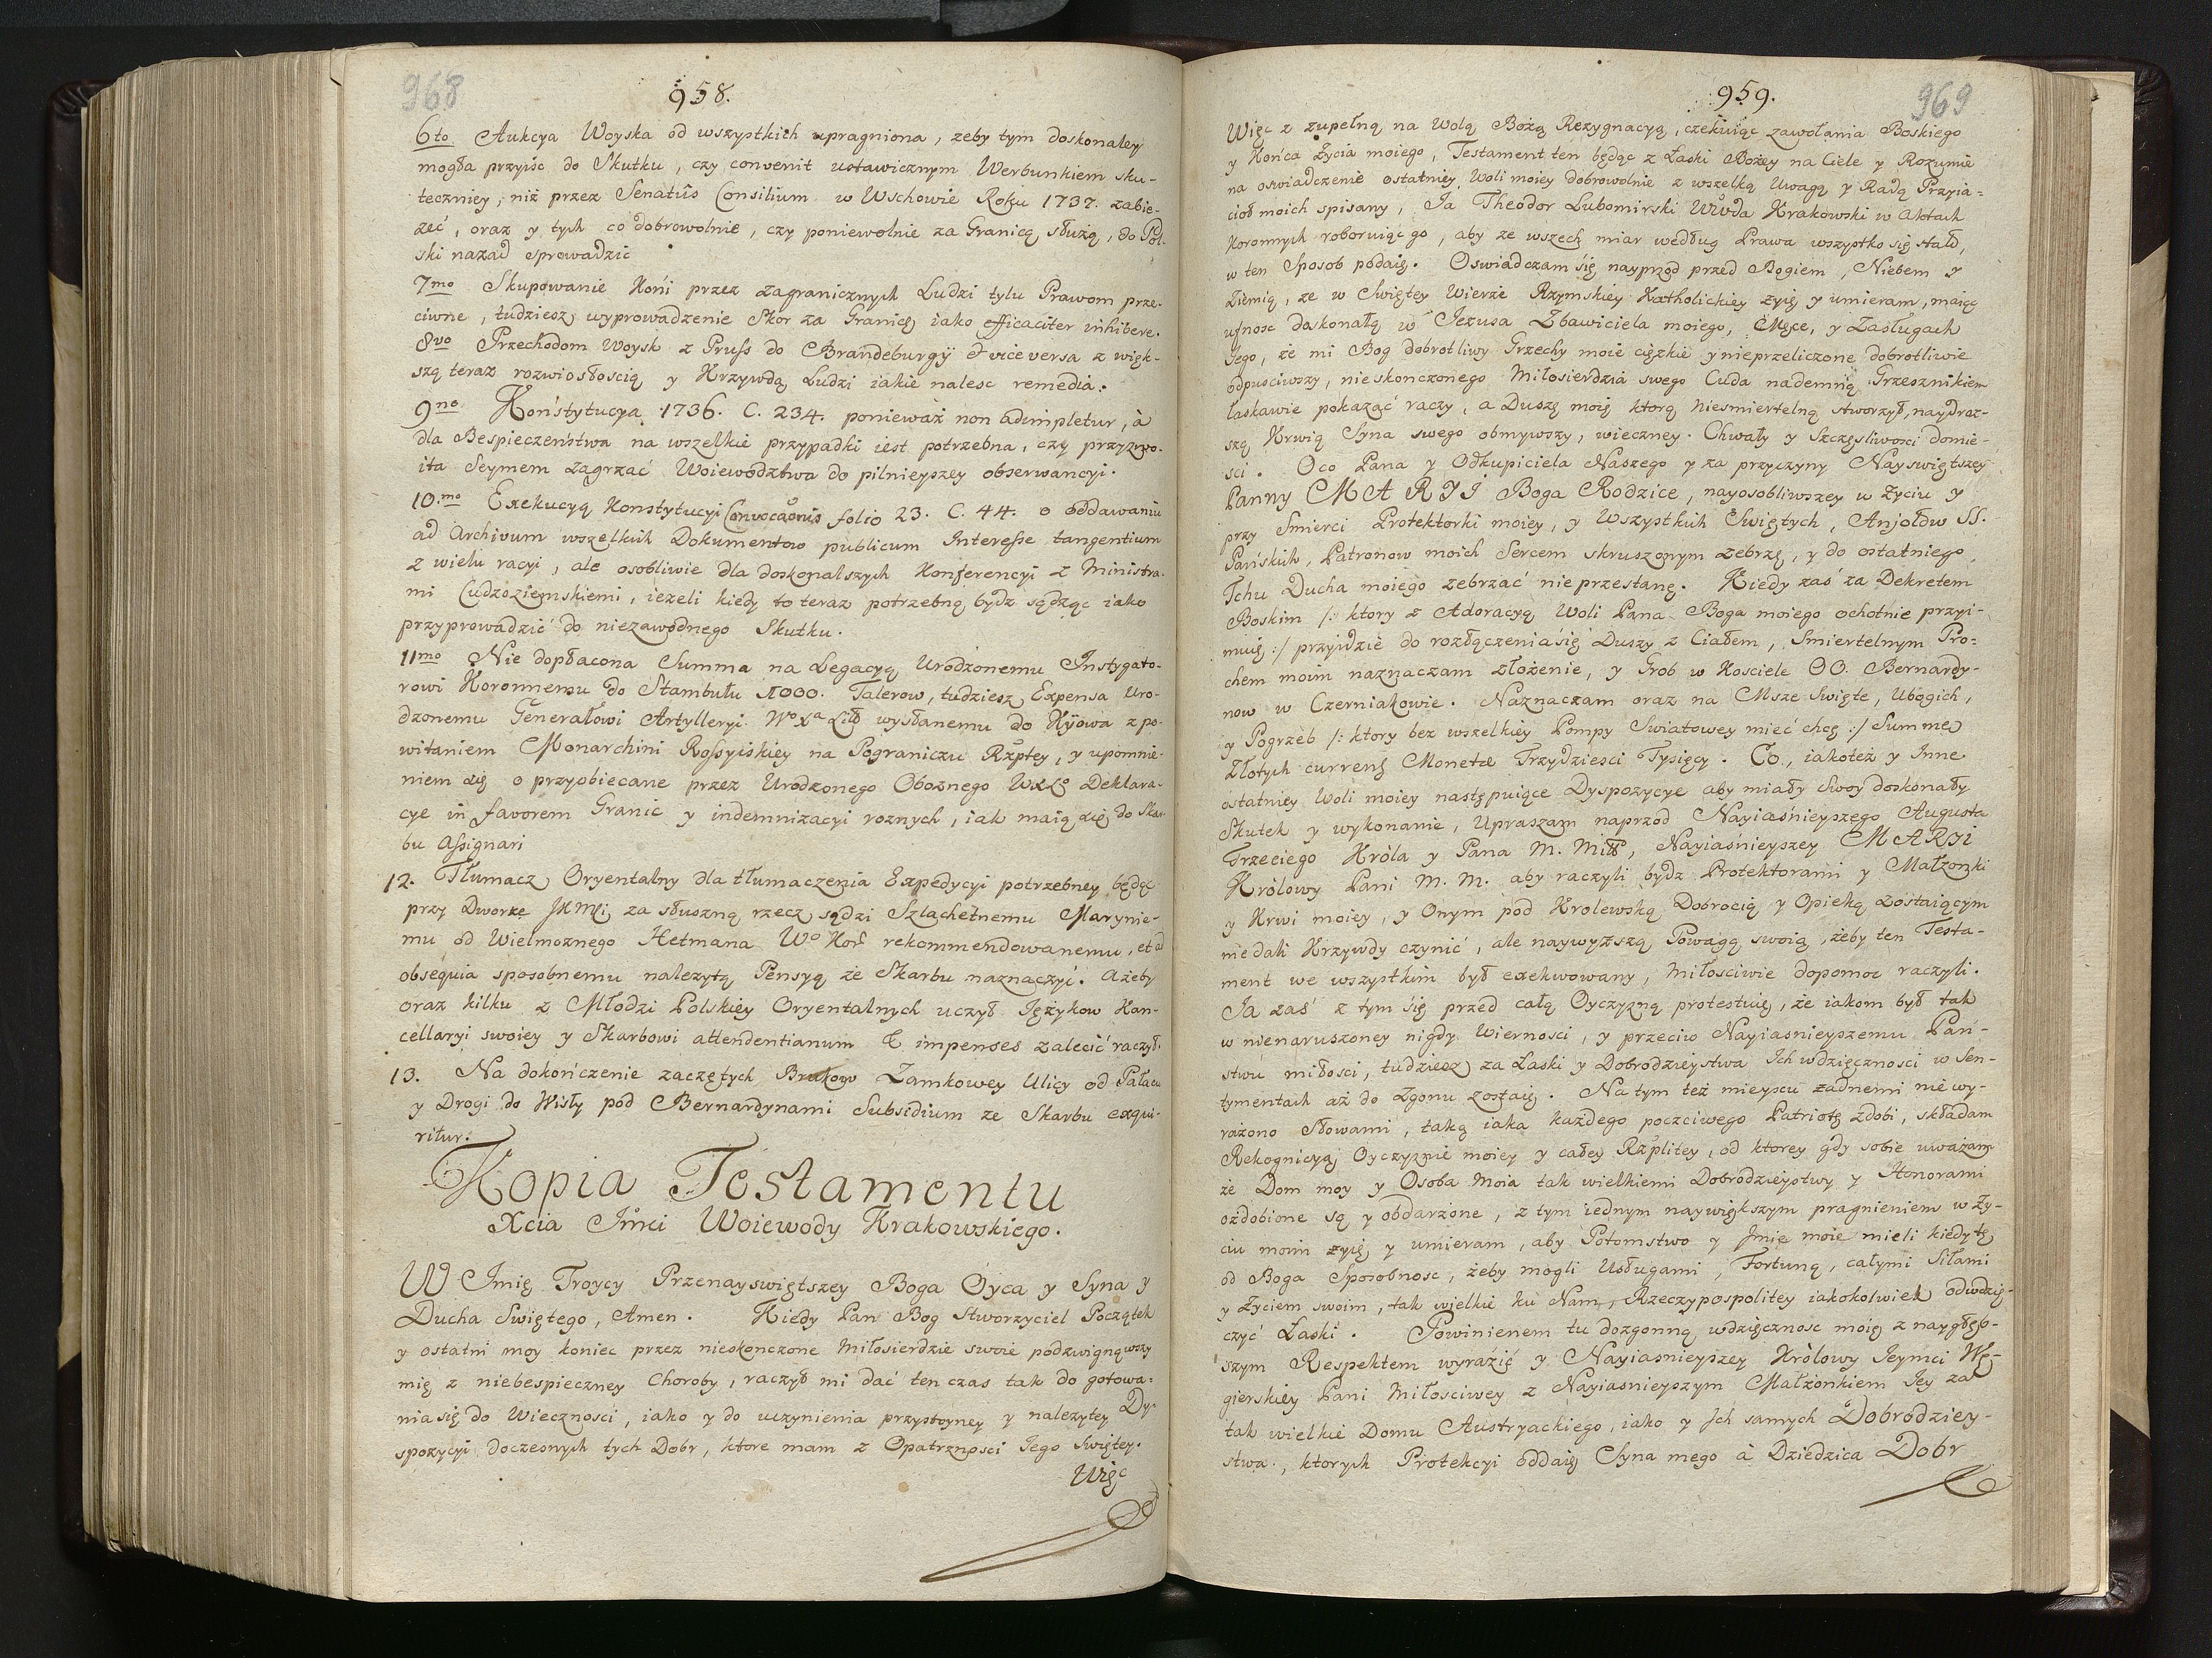 968
958.
6to Aukcya Woyska od wszystkich upragniona, zeby tym doskonaley
mogła przyisc do Skutku, czy convenit ustawicznym Werbunkiem sku-
teczniey, niż przez Senatus Consilium w Wschowie Roku 1737. zabie-
żeć, oraz y tych co dobrowolnie, czy poniewolnie za Granicą służą, do Pol-
ski nazad sprowadzić
7mo Skupowanie Koni przez zagranicznych Ludzi tylu Prawom prze-
ciwne, tudziesz wyprowadzenie Skor za Granicę iako efficaciter inhibere.
8vo Przechodom Woysk z Pruss do Brandeburgÿ & vice versa z więk-
szą teraz rozwiosłoscią y Krzywdą Ludzi iakie nalesc remedia.
9no Konstytucya 1736. C. 234. ponieważ non adimpletur, à
dla Bespieczenstwa na wszelkie przypadki iest potrzebna, czy przyzwo-
ita Seymem zagrzać Woiewodztwa do pilnieyszey obserwancyi.
10.mo Exekucyą Konstytucyi Convocaonis folio 23. C. 44. o oddawaniu
ad Archivum wszelkich Dokumentow publicum Interesse tangentium
z wielu racyi, ale osobliwie dla doskonalszych Konferencyi z Ministra-
mi Cudzoziemskiemi, iezeli kiedy to teraz potrzebną bydz sądząc iako
przyprowadzić do niezawodnego Skutku.
11mo Nie dopłacona Summa na Legacyą Urodzonemu Instygato-
rowi Koronnemu do Stambułu 11000. Talerow, tudziesz Expensa Uro-
dzonemu Generałowi Artylleryi Wo Xa Litt wysłanemu do Kÿowa z po-
witaniem Monarchini Rossyiskiey na Pograniczu Rzptey, y upomnie-
niem się o przyobiecane przez Urodzonego Oboznego WXLo Deklara-
cye in favorem Granic y indemnizacyi roznych, iak maią się do Skar-
bu Assignari
12. Tłumacz Oryentalny dla tłumaczenia Expedycyi potrzebney będąc
przy Dworze JKMci za słuszną rzecz sądzi Szlachetnemu Marynie-
mu od Wielmoznego Hetmana Wo Kor rekommendowanemu, et ad
obsequia sposobnemu nalezytą Pensyą że Skarbu naznaczyć. Ażeby
oraz kilku z Młodzi Polskiey Oryentalnych uczył Językow Kan-
cellaryi swoiey y Skarbowi attendentianum & impenses zalecić raczył.
13. Na dokończenie zaczętych Brukow Zamkowey Ulicy od Pałacu
y Drogi do Wisły pod Bernardynami Subsidium ze Skarbu exqui-
ritur.
Kopia Testamentu
Xcia Jmci Woiewody Krakowskiego.
W Imię Troycy Przenayswiętszey Boga Oyca y Syna y
Ducha Swiętego, Amen. Kiedy Pan Bog Stworzyciel Początek
y ostatni moy koniec przez nieskonczone Miłosierdzie swoie podzwignąwszy
mię z niebespieczney Choroby, raczył mi dać ten czas tak do gotowa-
nia się do Wiecznosci, iako y do uczynienia przystoyney y nalezytey Dy-
spozycyi doczesnych tych Dobr, ktore mam z Opatrznosci Jego Swiętey.
Więc
969
959.
Więc z zupełną na Wolą Bożą Rezygnacyą, czekaiąc zawołania Boskiego
y Końca Życia moiego, Testament ten będąc z Łaski Bożey na Ciele y Rozumie
na oswiadczenie ostatniey Woli moiey dobrowolnie z wszelką Uwagą y Radą Przyia-
cioł moich spisany, Ja Theodor Lubomirski Wwda Krakowski w Aktach
Koronnych roboruiąc go, aby ze wszech miar według Prawa wszystko się stało,
w ten Sposob podaię. Oswiadczam się nayprzod przed Bogiem, Niebem y
Ziemią, ze w Swiętey Wierze Rzymskiey Katholickiey zyię y umieram, maiąc
ufnosc doskonałą w Jezusa Zbawiciela moiego, Męce, y Zasługach
Jego, że mi Bog dobrotliwy Grzechy moie cięzkie y nieprzeliczone dobrotliwie
odpusciwszy, nieskonczonego Miłosierdzia swego Cuda nademną Grzesznikiem
łaskawie pokazać raczy, a Duszę moię ktorą niesmiertelną stworzył, naydroz-
szą Krwią Syna swego obmywszy, wieczney Chwały y Szczęsliwosci domie-
sci. Oco Pana y Odkupiciela Naszego y za przyczyny Nayswiętszey
Panny MARYI Boga Rodzice, nayosobliwszey w Życiu y
przy Smierci Protektorki moiey, y Wszystkich Swiętych, Anjołow SS.
Pańskich, Patronow moich Sercem skruszonym zebrzę, y do ostatniego
Tchu Ducha moiego zebrzać nie przestanę. Kiedy zaś za Dekretem
Boskim /: ktory z Adoracyą Woli Pana Boga moiego ochotnie przyi-
muię :/ przyidzie do rozłączenia się Duszy z Ciałem, Smiertelnym Pro-
chem moim naznaczam złożenie, y Grob w Kosciele OO. Bernardy-
now w Czerniakowie. Naznaczam oraz na Msze Swięte, Ubogich,
y Pogrzeb /: ktory bez wszelkiey Pompy Swiatowey mieć chcę :/ Summę
Złotych currens Monetæ Trzydziesci Tysięcy. Co, iakoteż y Inne
ostatniey Woli moiey następuiące Dyspozycye aby miały Swoy doskonały
Skutek y wykonanie, Upraszam naprzod Nayiaśnieyszego Augusta
Trzeciego Króla y Pana M. Mittő, Nayiaśnieyszey MARYI
Królowy Pani M. M. aby raczyli bydz Protektorami y Małzonki
y Krwi moiey, y Onym pod Krolewską Dobrocią y Opieką zostaiącym
nie dali Krzywdy czynić, ale naywyższą Powagą swoią, żeby ten Testa-
ment we wszystkim był exekwowany, Miłosciwie dopomoc raczyli.
Ja zaś z tym się przed całą Oyczyzną protestuię, że iakom był tak
w nienaruszoney nigdy Wiernosci, y przeciw Nayiasnieyszemu Pań-
stwu miłosci, tudziesz za Łaski y Dobrodzieystwa Ich wdzięcznosci w Sen-
tymentach aż do Zgonu zostaię. Na tym też mieyscu zadnemi nie wy-
rażono Słowami, taką iaka każdego poczciwego Patriotę zdobi, składam
Rekognicyą Oyczyznie moiey y całey Rzplitey, od ktorey gdy sobie uważam
że Dom moy y Osoba moia tak wielkiemi Dobrodzieystwy y Honorami
ozdobione są y obdarzone, z tym iednym naywiększym pragnieniem w Ży-
ciu moim zyię y umieram, aby Potomstwo y Jmie moie mieli kiedyż
od Boga Sposobnosc, żeby mogli Usługami, Fortuną, całymi Siłami
y Życiem swoim, tak wielkie ku Nam, Rzeczypospolitey iakokolwiek odwdzię-
czyć Łaski. Powinienem tu dozgonną wdzięcznosc moię z naygłęb-
szym Respektem wyrazić y Nayiasnieyszey Krolowy Jeymci Wę-
gierskiey Pani Miłosciwey z Nayiasnieyszym Małżonkiem Jey za
tak wielkie Domu Austryackiego, iako y Ich samych Dobrodziey-
stwa, ktorych Protekcyi oddaię Syna mego à Dziedzica Dobr